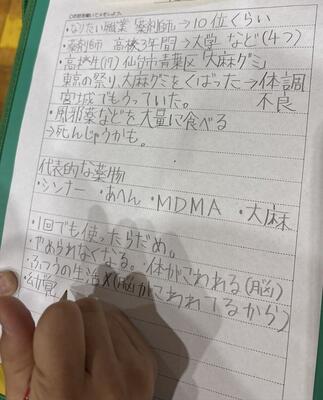 ・なりたい職業 薬剤師→10位くらい
・薬剤師 高校3年間→大学など(4つ)
・高校生(17) 仙台市青葉区「大麻グミ」
東京の祭り、大麻グミをくばった→体調不良
宮城でもうっていた。
・風邪薬などを大量に食べる
→死んじゃうかも。
代表的な薬物
・シンナー ・あへん ・MDMA ・大麻
・1回でも使ったらだめ。
・やめられなくなる。・体がこわれる(脳)
・ふつうの生活X(脳がこわれてるから)
・幻覚